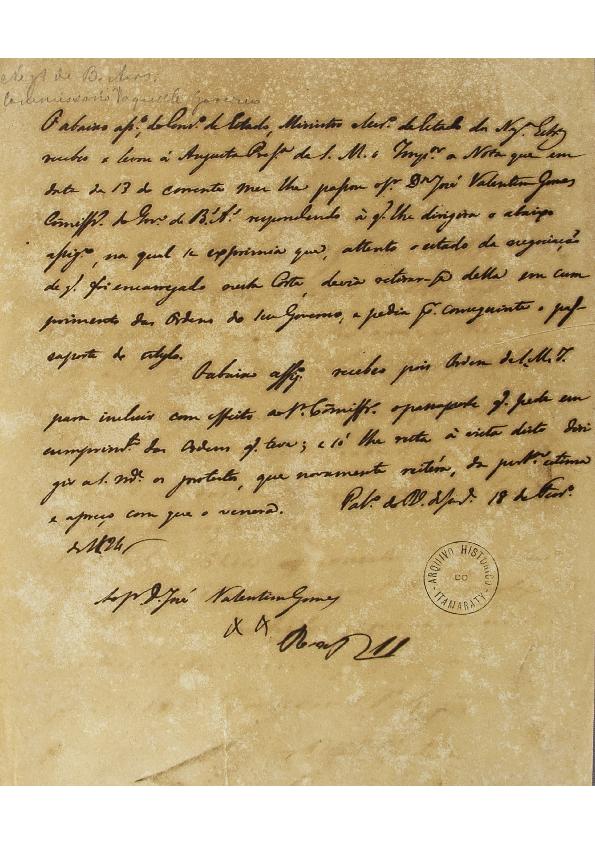 Neg. de B. Ayres.
Commissario d'aquelle Governo
O abaixo assº. do Consº. de Estado, Ministro Secrº. de Estado dos Negº. Estrº
recebeo e levou à Augusta Presª de S. M. o Impºr a Nota que em
data de 13 do corrente mez lhe passou o Sr. Dn José Valentim Gomes
Comissº. do Govº. de B.s A.s respondendo à q. lhe dirigira o abaixo
assigº, na qual se exprimia que, attento o estado da negociação
de q. foi encarregado nesta Corte, devia retirar-se della em cum
primento das Ordens do seu Governo, e pedia pr. conseguinte o pas-
saporte do estylo.
O abaixo assigº. recebeo pois Ordem de S. M. I.
para incluir com effeito ao Sr. Comissrº. o passaporte q. pede em
cumprimtº das Ordens q. teve; e só lhe resta à vista disto diri
gir a S. Mcê. os protestos, que novamente reitera, da perfª. estima
e apreço com que o venera. Palº. do Rº. de Janrº. 18 de Fevrº.
de 1824
Ao Sr. D. José Valentim Gomes
ARQUIVO HISTORICO
DO
ITAMARATY